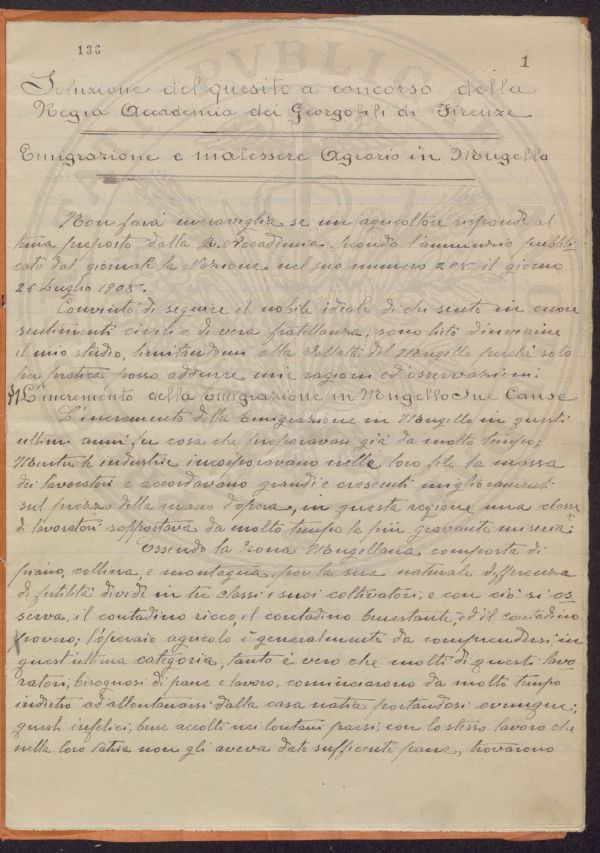 136
1
Soluzione del quesito a concorso della
Regia Accademia dei Georgofili di Firenze
Emigrazione e malessere Agrario in Mugello
Non farà meraviglia se un agricoltore risponde al
tema proposto dalla R. Accademia secondo l'annunzio pubbli-
cato dal giornale la Nazione nel suo numero 208 il giorno
26 Luglio 1908.
Convinto di seguire il nobile ideale di chi sente in cuore
sentimenti civili e di vera fratellanza, sono lieto d'inviarne
il mio studio, limitandomi alla Vallata del Mugello perché solo
per pratica posso addurre mie ragioni ed osservazioni:
§1 L'incremento della Emigrazione in Mugello Sue Cause
L'incremento della Emigrazione in Mugello in questi
ultimi anni fu cosa che preparavasi già da molto tempo;
Mentre le industrie incorporavano nelle loro file la massa
dei lavoratori e accordavano grandi e crescenti miglioramenti
sul prezzo della mano d'opera, in questa regione una classe
di lavoratori sopportava da molto tempo la più gravante miseria.
Essendo la zona Mugellana composta di
piano, collina, e montagna, per la sua naturale differenza
di fertilità divide in tre classi i suoi coltivatori; e con ciò si os-
serva, il contadino ricco, il contadino benestante, ed il contadino
povero; l'operaio agricolo è generalmente da comprendersi in
quest'ultima categoria, tanto è vero che molti di questi lavo-
ratori, bisognosi di pane e lavoro, cominciarono da molto tempo
indietro ad allontanarsi dalla casa natia portandosi ovunque;
questi infelici, bene accolti nei lontani paesi, con lo stesso lavoro che
nella loro patria non gli aveva dato sufficente pane, trovarono